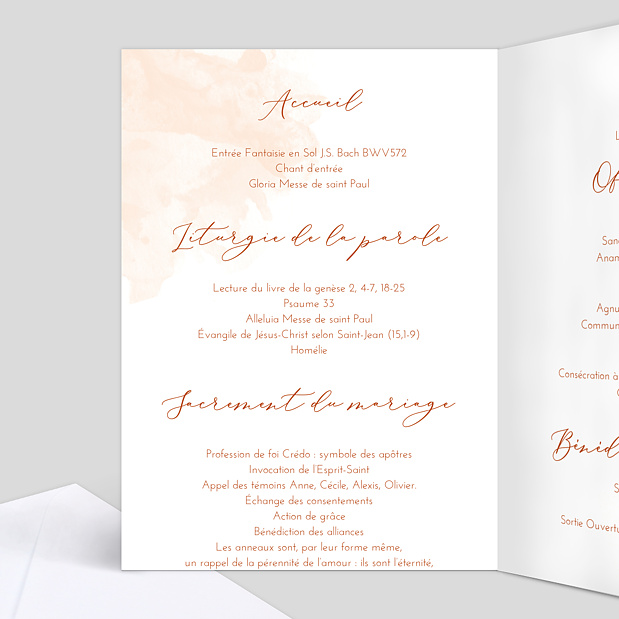 Accueil
Entrée Fantaisie en Sol J.S. Bach BWV572
Chant d'entrée
Gloria Messe de saint Paul
Liturgie de la parole
Lecture du livre de la genèse 2, 4-7, 18-25
Psaume 33
Alleluia Messe de saint Paul
Évangile de Jésus-Christ selon Saint-Jean (15,1-9)
Homélie
Sacrement du mariage
Profession de foi Crédo : symbole des apôtres
Invocation de l'Esprit-Saint
Appel des témoins Anne, Cécile, Alexis, Olivier.
Échange des consentements
Action de grâce
Bénédiction des alliances
Les anneaux sont, par leur forme même,
un rappel de la pérennité de l'amour : ils sont l'éternité,
Consécration à
Sortie